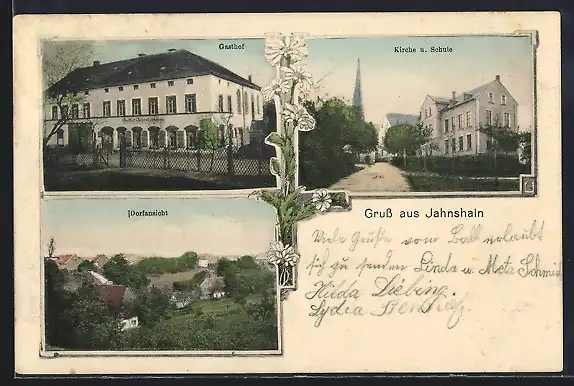 Gasthof
Kirche u. Schule
Dorfansicht
Gruß aus Jahnshain
Viele Grüße vom Ball erlaubt
sich zu senden Linda u. Meta Schmidt
Hilda Liebing.
Lydia